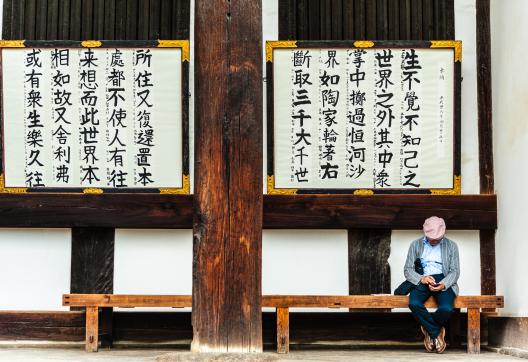 斷取三千大千世
界如陶家輪著右
掌中擲過恒河沙
世界之外其中衆
生不覺不知己之
所住又復還置本
處都不使人有往
来想而此世界本
相如故又舍利弗
或有衆生樂久往